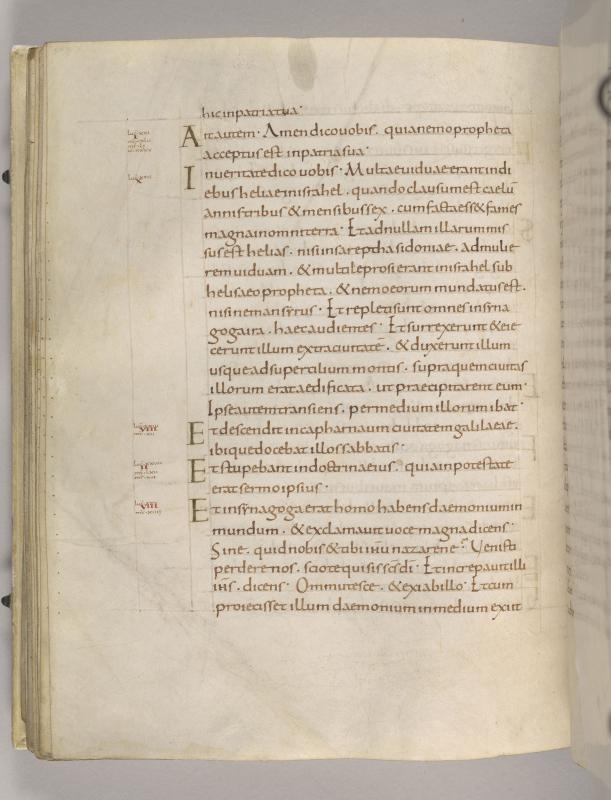 hic inpatriatua·
Ait autem· Amen dico uobis. quia nemo propheta
acceptus est inpatria sua·
In ueritate dico uobis· Multae uiduae erant in di
ebus heliae in israhel. quando clausum est caelū
annis tribus & mensibus sex. cum facta ess& fames
magna in omni terra· Et ad nullam illarum mis
sus est helias. nisi in sareptha sidoniae. ad mulie
rem uiduam. & multi leprosi erant in israhel sub
helisaeo propheta. & nemo eorum mundatus est.
nisi neman syrus· Et repleti sunt omnes in syna
goga ira. haec audientes· Et surrexerunt & eie
cerunt illum extra ciuitatē. & duxerunt illum
usque ad supercilium montis. supra quem ciuitas
illorum erat aedificata. ut praecipitarent eum·
Ipse autem transiens. per medium illorum ibat·
Et descendit in capharnaum ciuitatem galilaeae.
ibique docebat illos sabbatis·
Et stupebant in doctrina eius. quia in potestate
erat sermo ipsius·
Et in synagoga erat homo habens daemonium in
mundum. & exclamauit uoce magna dicens·
Sine. quid nobis & tibi ihū nazarene? Uenisti
perdere nos. scio te qui sis scs di· Et increpauit illi
ihs. dicens· Ommutesce. & exi ab illo· Et cum
proiecisset illum daemonium in medium exiit